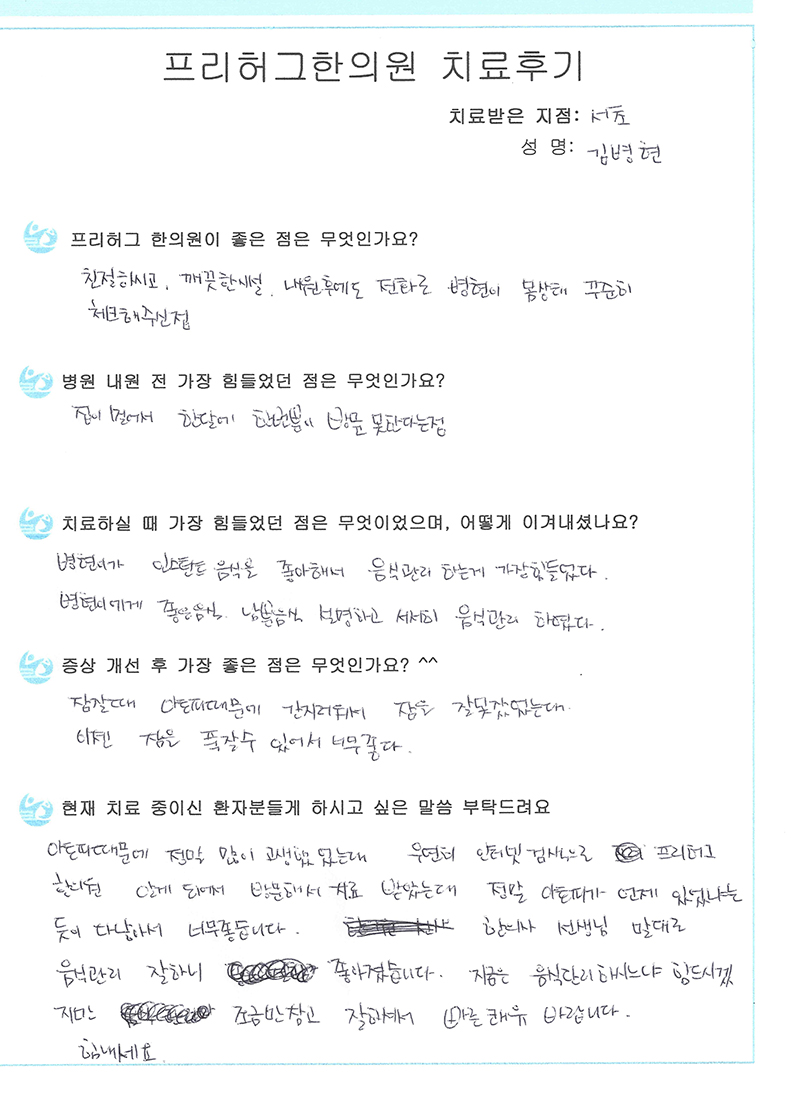 프리허그한의원 치료후기
치료받은 지점: 서초
성 명: 김병현
프리허그 한의원이 좋은 점은 무엇인가요?
친절하시고, 깨끗한시설, 내원후에도 전화로 병현이 몸상태 꾸준히
체크해주신점
병원 내원 전 가장 힘들었던 점은 무엇인가요?
집이 멀어서 한달에 한번뿐이 방문 못한다는점
치료하실 때 가장 힘들었던 점은 무엇이었으며, 어떻게 이겨내셨나요?
병현이가 인스탄트 음식을 좋아해서 음식관리 하는게 가장힘들었다.
병현이에게 좋은음식, 나쁜음식 설명하고 서서히 음식관리 하였다.
증상 개선 후 가장 좋은 점은 무엇인가요? ^^
잠잘때 아토피때문에 간지러워서 잠을 잘못잤었는데.
이젠 잠을 푹잘수 있어서 너무좋다.
현재 치료 중이신 환자분들게 하시고 싶은 말씀 부탁드려요
아토피때문에 정말 많이 고생했었는데 우연히 인터넷 검색으로 프리허그
한의원 알게 되어서 방문해서 치료 받았는데 정말 아토피가 언제 있었냐는
듯이 다나아서 너무좋습니다. 한의사 선생님 말대로
음식관리 잘하니 좋아졌습니다. 지금은 음식관리하시느냐 힘드시겠
지만 조금만참고 잘하셔서 빠른쾌유 바랍니다.
힘내세요.